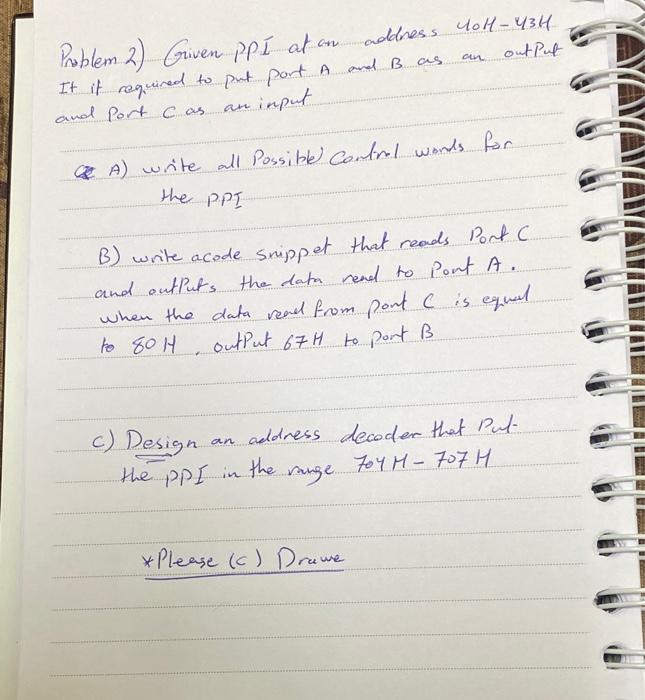 Problem 2) Given PPI at an address 40H-43H
It if required to put port A and B as an output
and Port C as an input
A) write all Possible) Control words for
the PPI
B) write acode snippet that reads Port C
and outPuts the data read to Port A.
when the data read from port C is equal
to 80H, outPut 67H to port B
C) Design an address decoder that Put-
the ppI in the range 704H-707H
*Please (c) Drawe